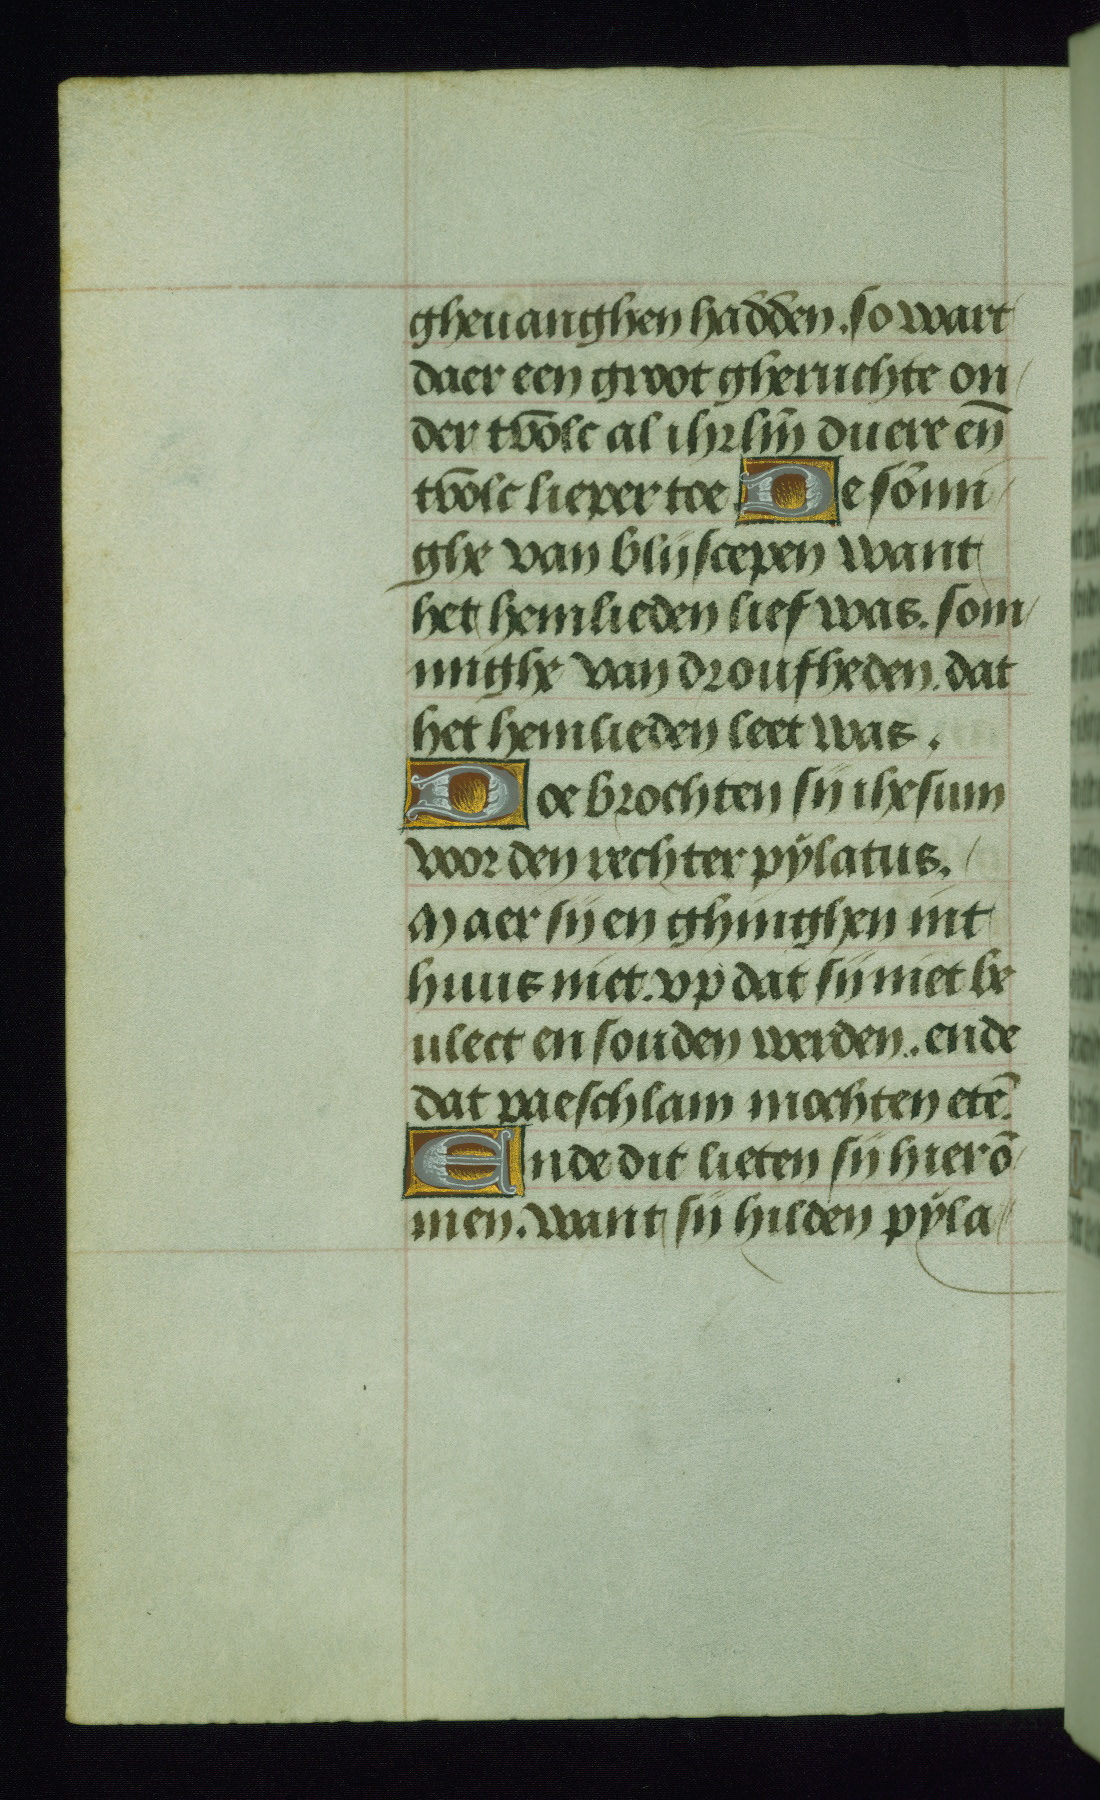 gheuanghen hadden. so wart
daer een groot gheruchte on
der tvōlc al ihrlm̄ duere en̄
tvōlc lieper toe. De sōmi
ghe van blijscepen want
het hemlieden lief was. som
mighe van droufheden. dat
het hemlieden leet was.
Doe brochten sij ihesum
voor den rechter pÿlatus.
Maer sij en ghinghen int
huus niet. vp dat sij niet be
ulect en souden werden. ende
dat paeschlam mochten etē.
Ende dit lieten sij hierō
men. want sij hilden pÿla